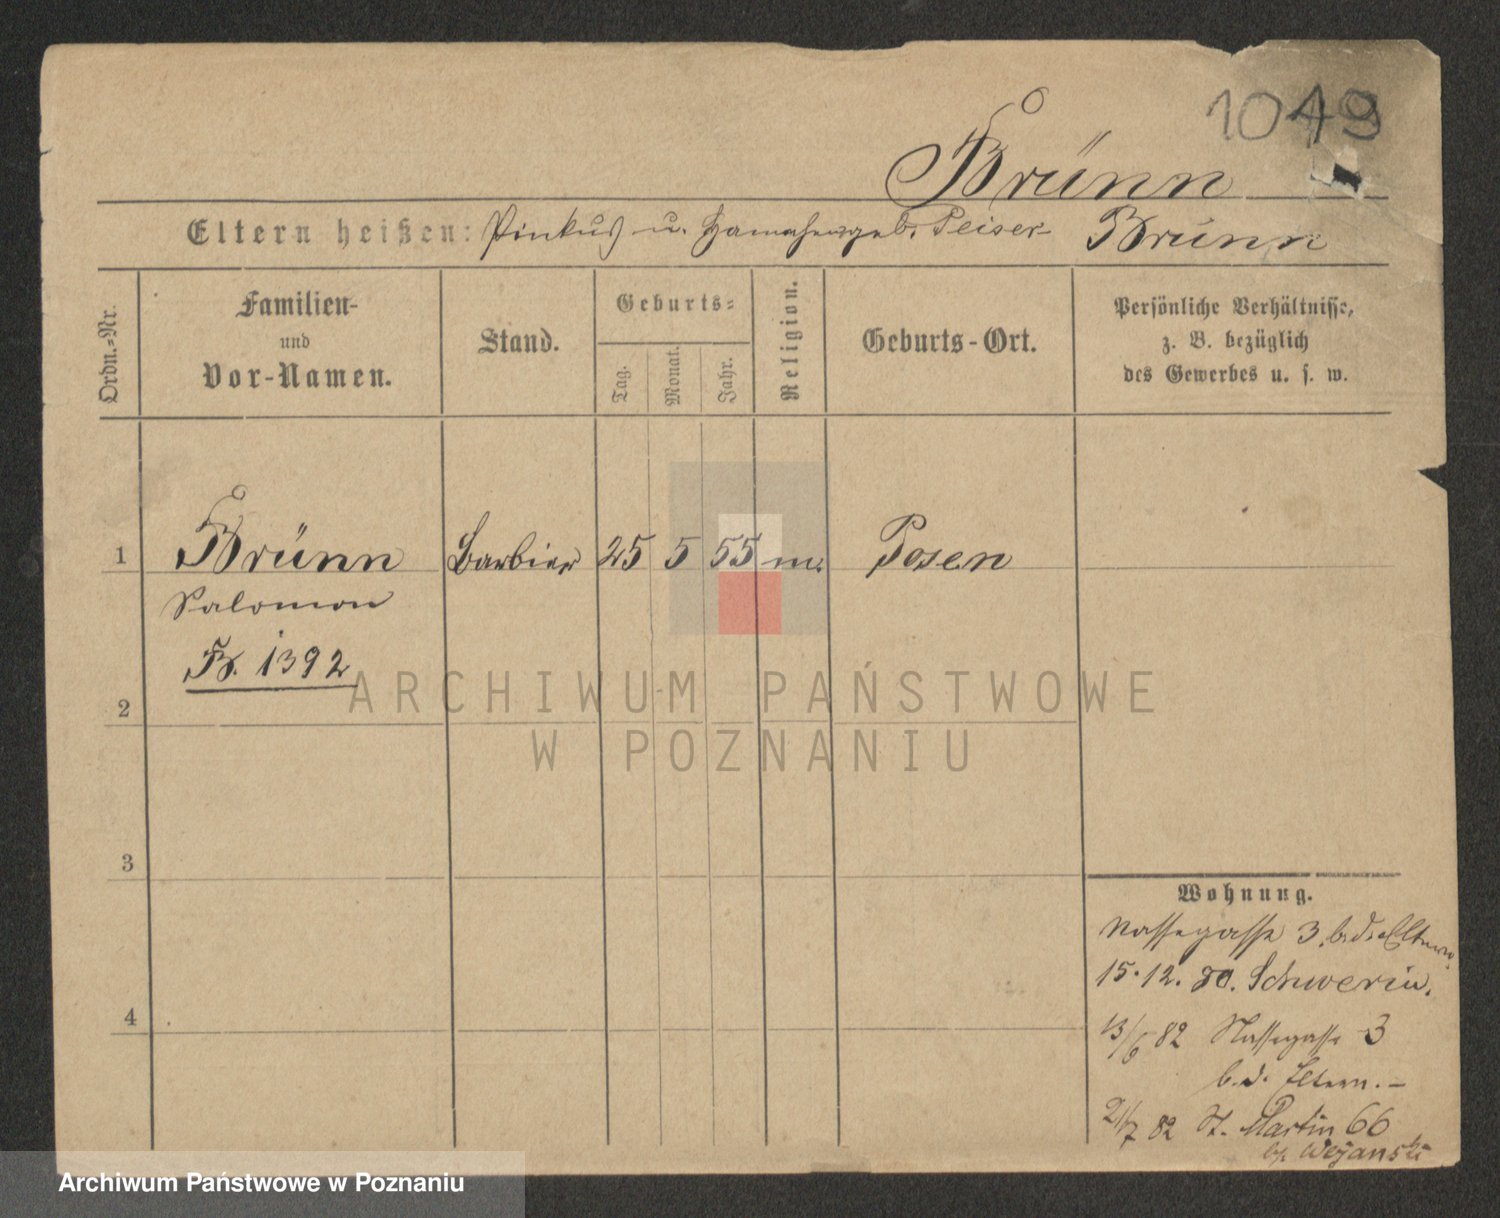 1049
Brünn
Eltern heißen: Pinkus u. geb. Peiser Brünn
Ordn.-Nr.
Familien-
und
Vor-Namen.
Stand.
Geburts-
Tag.
Monat.
Jahr.
Religion.
Geburts-Ort.
Persönliche Verhältnisse,
z. B. bezüglich
des Gewerbes u. s. w.
1 Brünn Barbier 25 5 55 m. Posen
Salomon
B. 1392
2
3
4
Wohnung.
Nassegasse 3. b. d. Eltern.
15.12.80. Schwerin.
13/6 82 Nassegasse 3
b. d. Eltern. –
21/7 82 St. Martin 66
ARCHIWUM PAŃSTWOWE
W POZNANIU
Archiwum Państwowe w Poznaniu